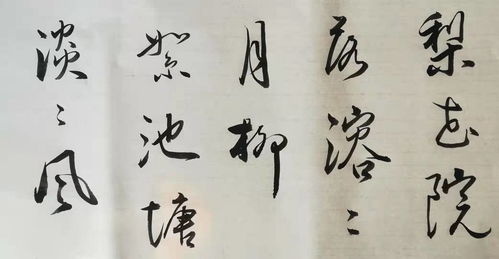 梨花院
落溶〻
月柳
絮池塘
淡〻风